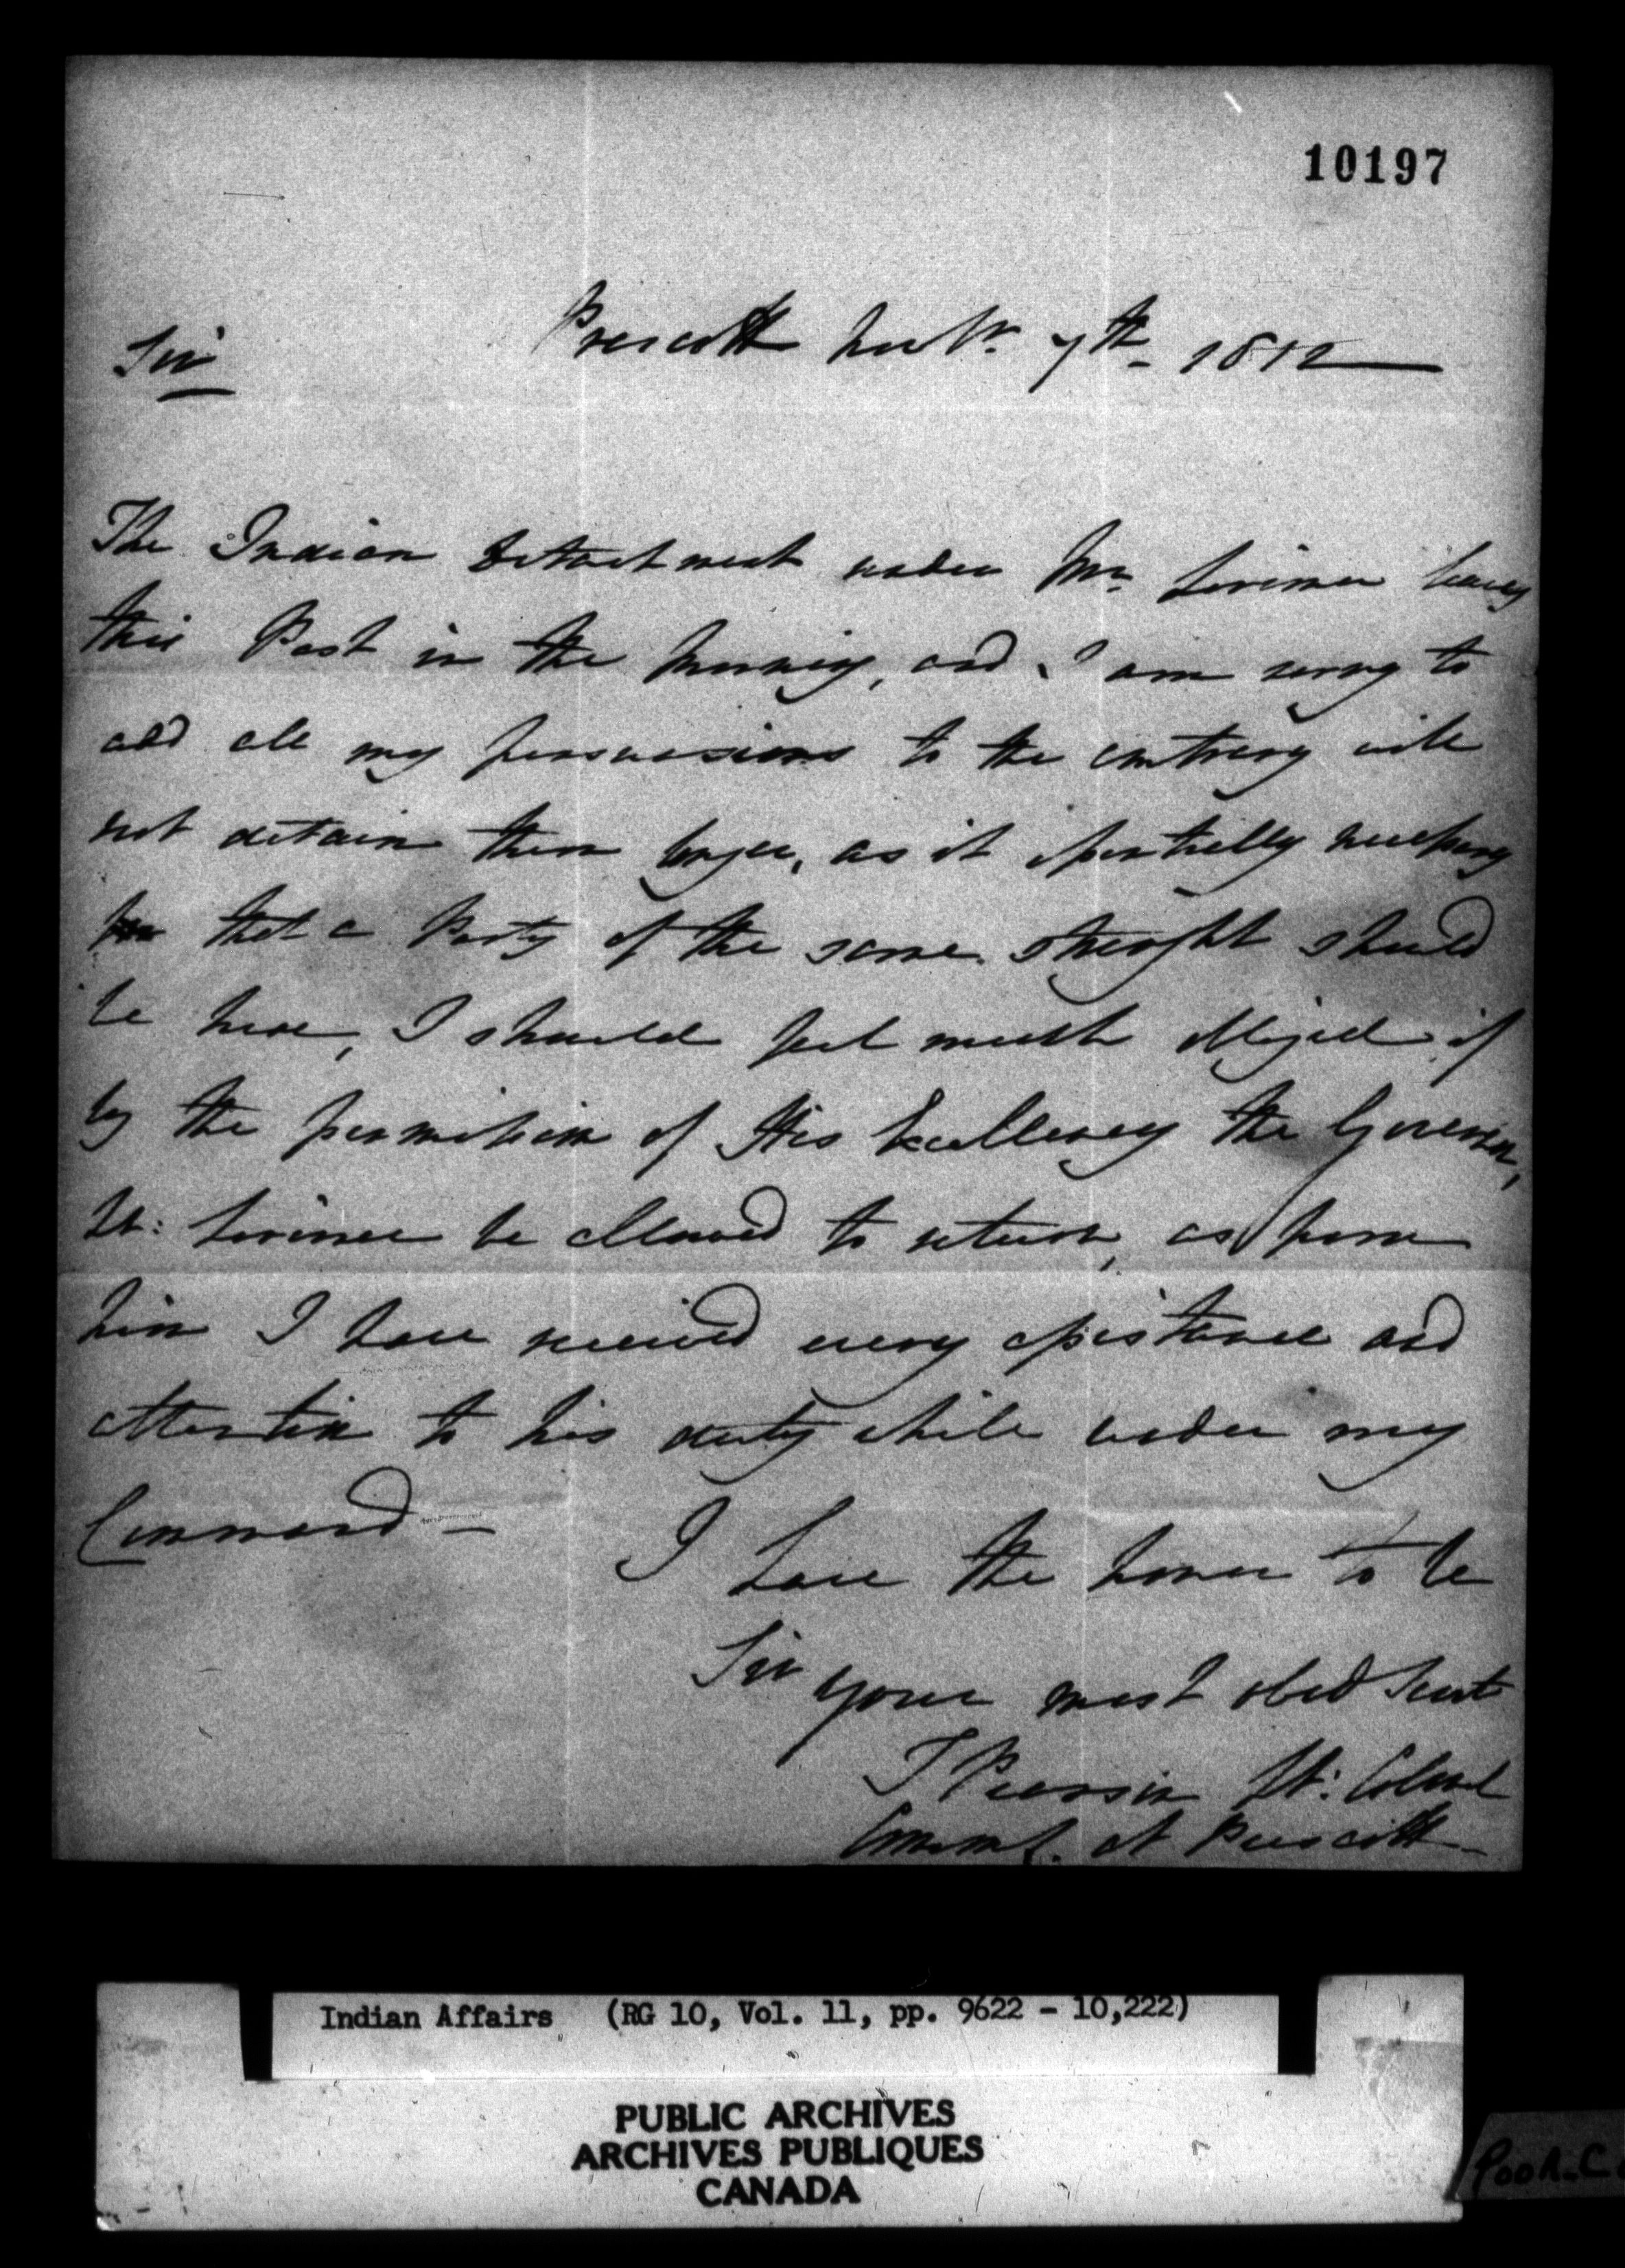 10197
Sir
Prescott Novbr. 7th 1812
The Indian Detachment under Mr. Lorimer leaves
this Post in the Morning, and I am sorry to
add all my persuasions to the contrary will
not detain them longer, as it essentially necessary
that a Party of the same strenght should
be here, I should feel much obliged if
by the permission of His Excellency the Governor,
Lt: Lorimer be allowed to return, as from
him I have received every assistance and
attention to his duty while under my
Command —
I have the honor to be
Sir
your most obed Servt
T Pearson Lt: Colonel
Commg. at Prescott
Indian Affairs (RG 10, Vol. 11, pp. 9622 - 10,222)
PUBLIC ARCHIVES
ARCHIVES PUBLIQUES
CANADA